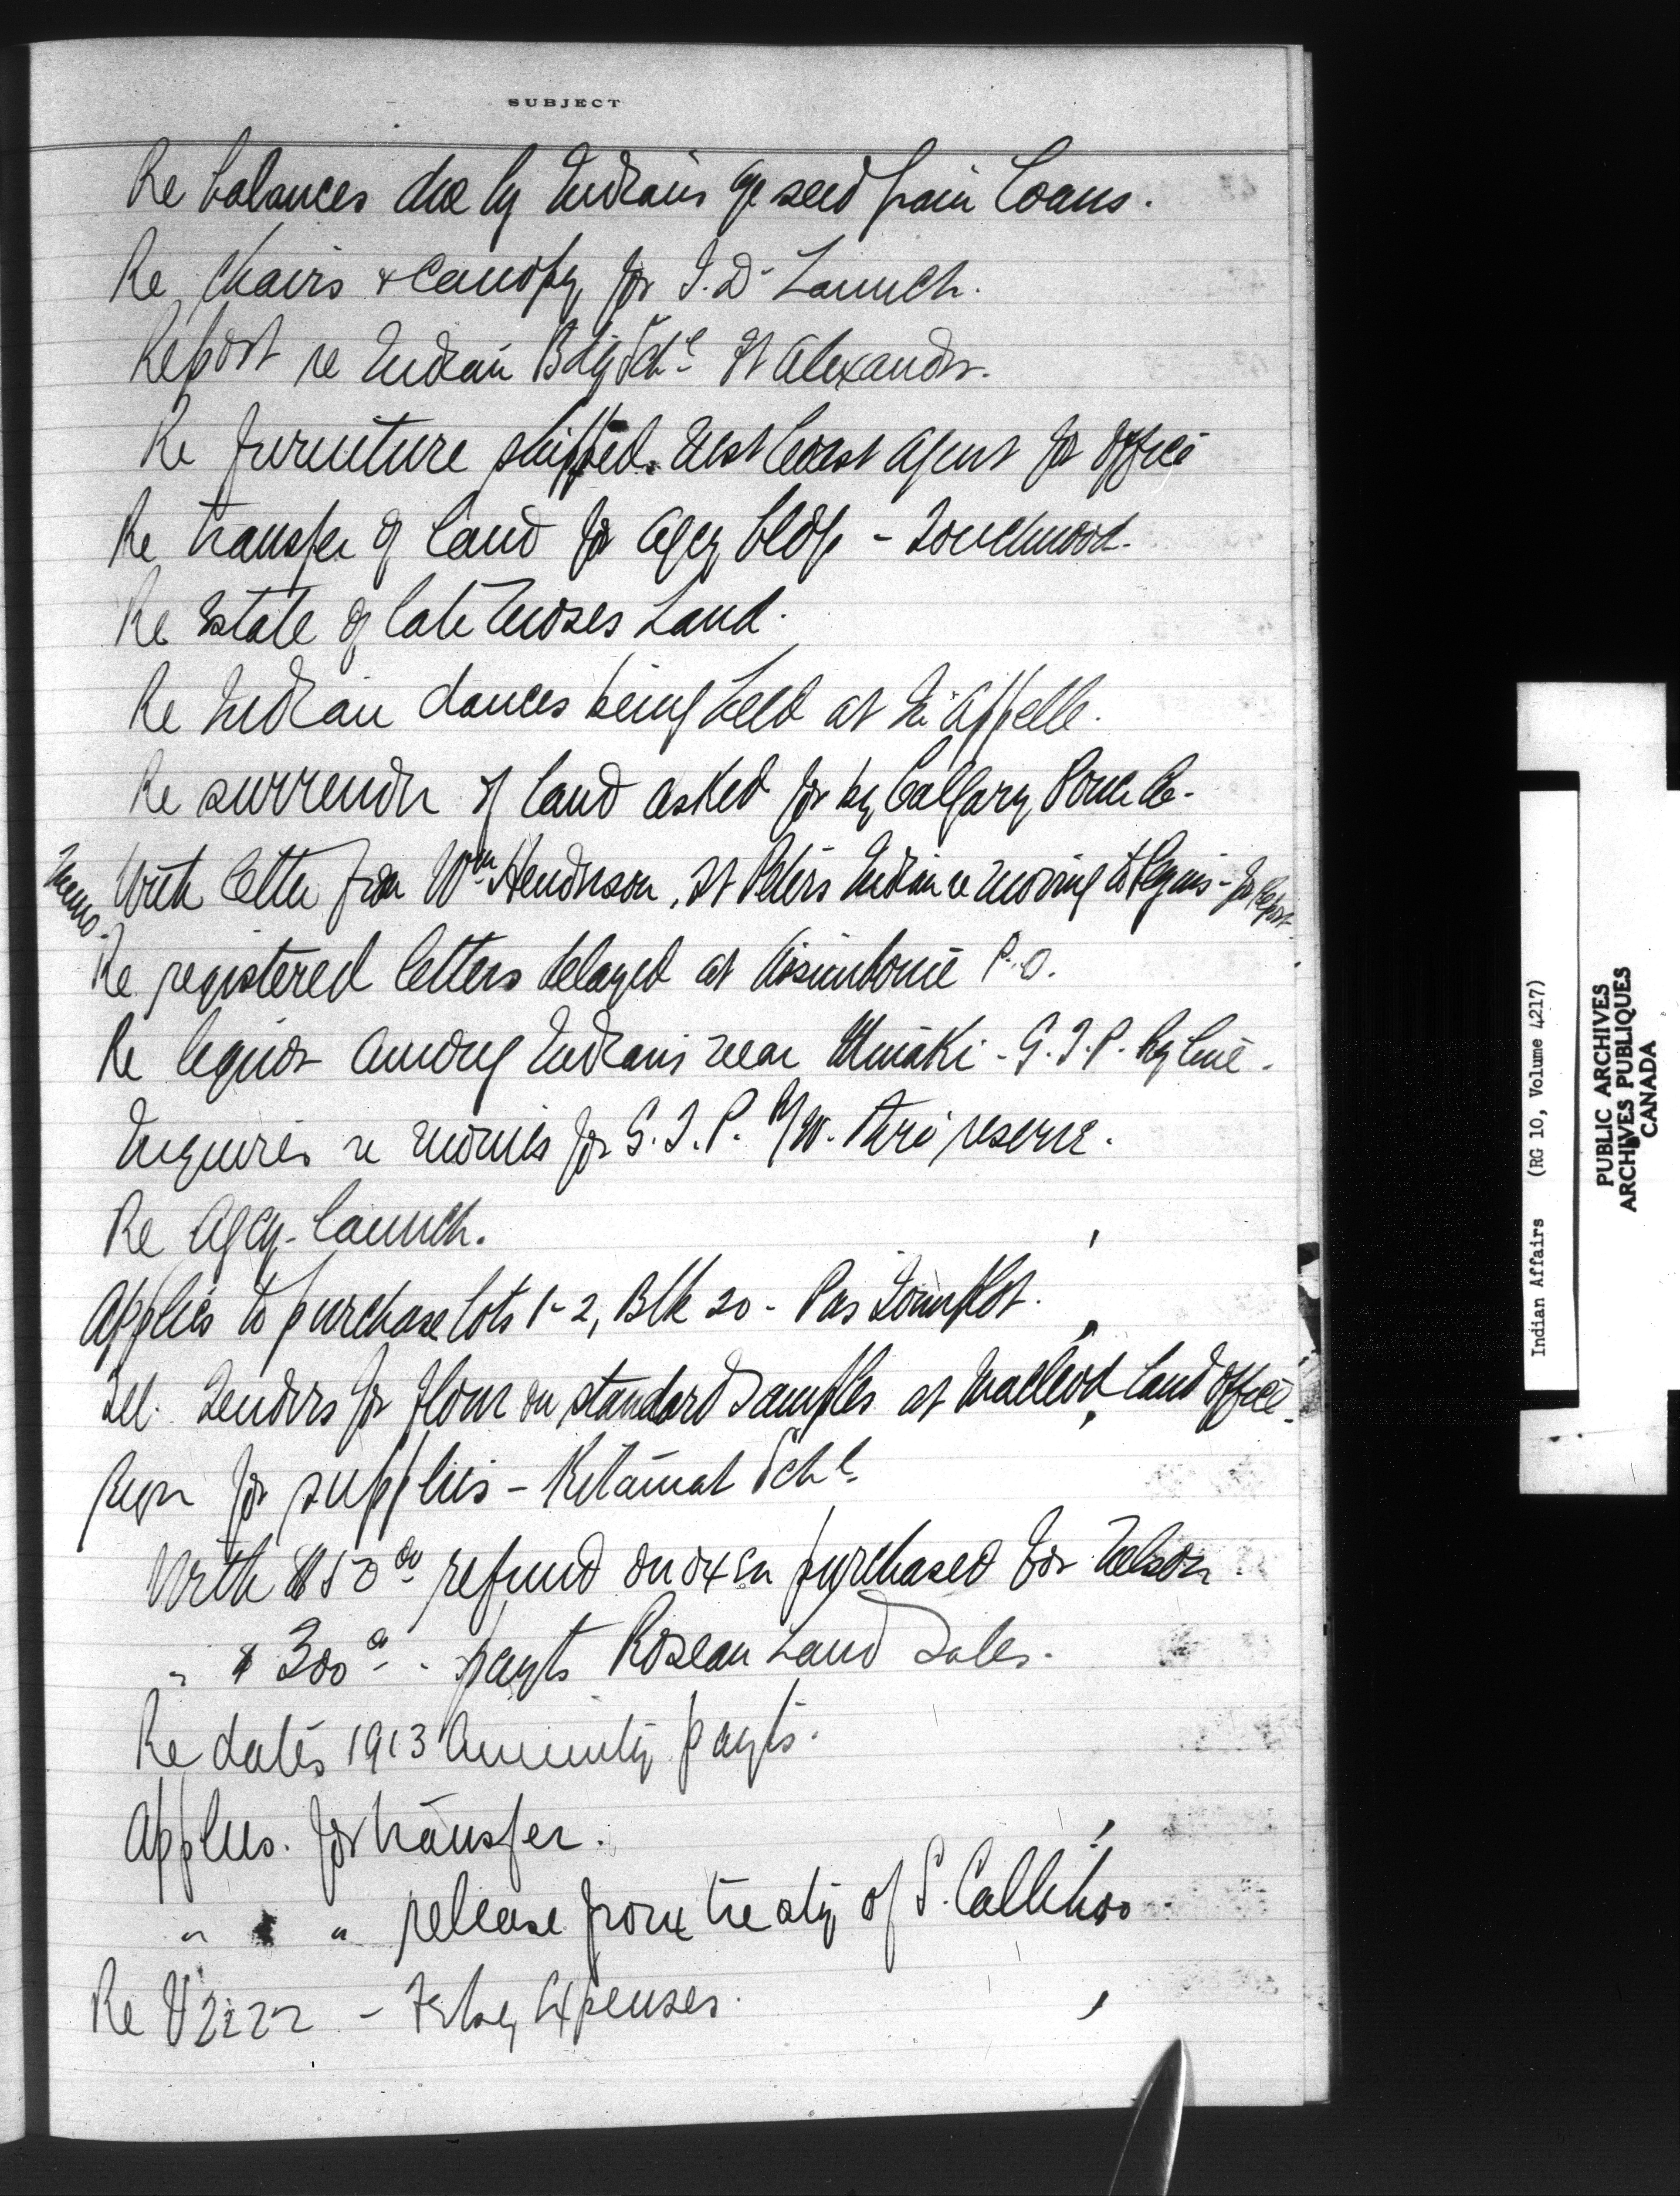 SUBJECT
Re balances due by Indians a/c seed grain loans.
Re chairs & canopy for I.D. Launch.
Report re Indian Bdg Schl St Alexander.
Re furniture shipped West Coast Agent for office
Re transfer of land for Agcy bldg - Touchwood.
Re Estate of late Moses Land.
Re Indian dances being held at Qu'Appelle.
Re surrender of land asked for by Calgary Power Co.
Memo. With letter from Wm Henderson, St Peters Indian re moving to Peguis - for Report.
Re registered letters delayed at Assiniboine P.O.
Re liquor among Indians near Minaki - G.T.P. Ry line.
Inquiries re monies for G.T.P. R/W. thro' reserve.
Re Agcy. launch.
Applies to purchase lots 1-2, Blk 20 - Pas Townplot.
Tel. Tenders for flour on standard samples at Macleod, Land Office.
Reqn for supplies - Kitamat Schl.
With $150 00 refund on oxen purchased for Nelson
" $300 00 - payts Roseau Land Sales.
Re dates 1913 Annuity payts.
Applies. for transfer.
" " release from treaty of S. Callihoo
Re V2222 - Expenses.
Indian Affairs (RG 10, Volume 4217)
PUBLIC ARCHIVES
ARCHIVES PUBLIQUES
CANADA